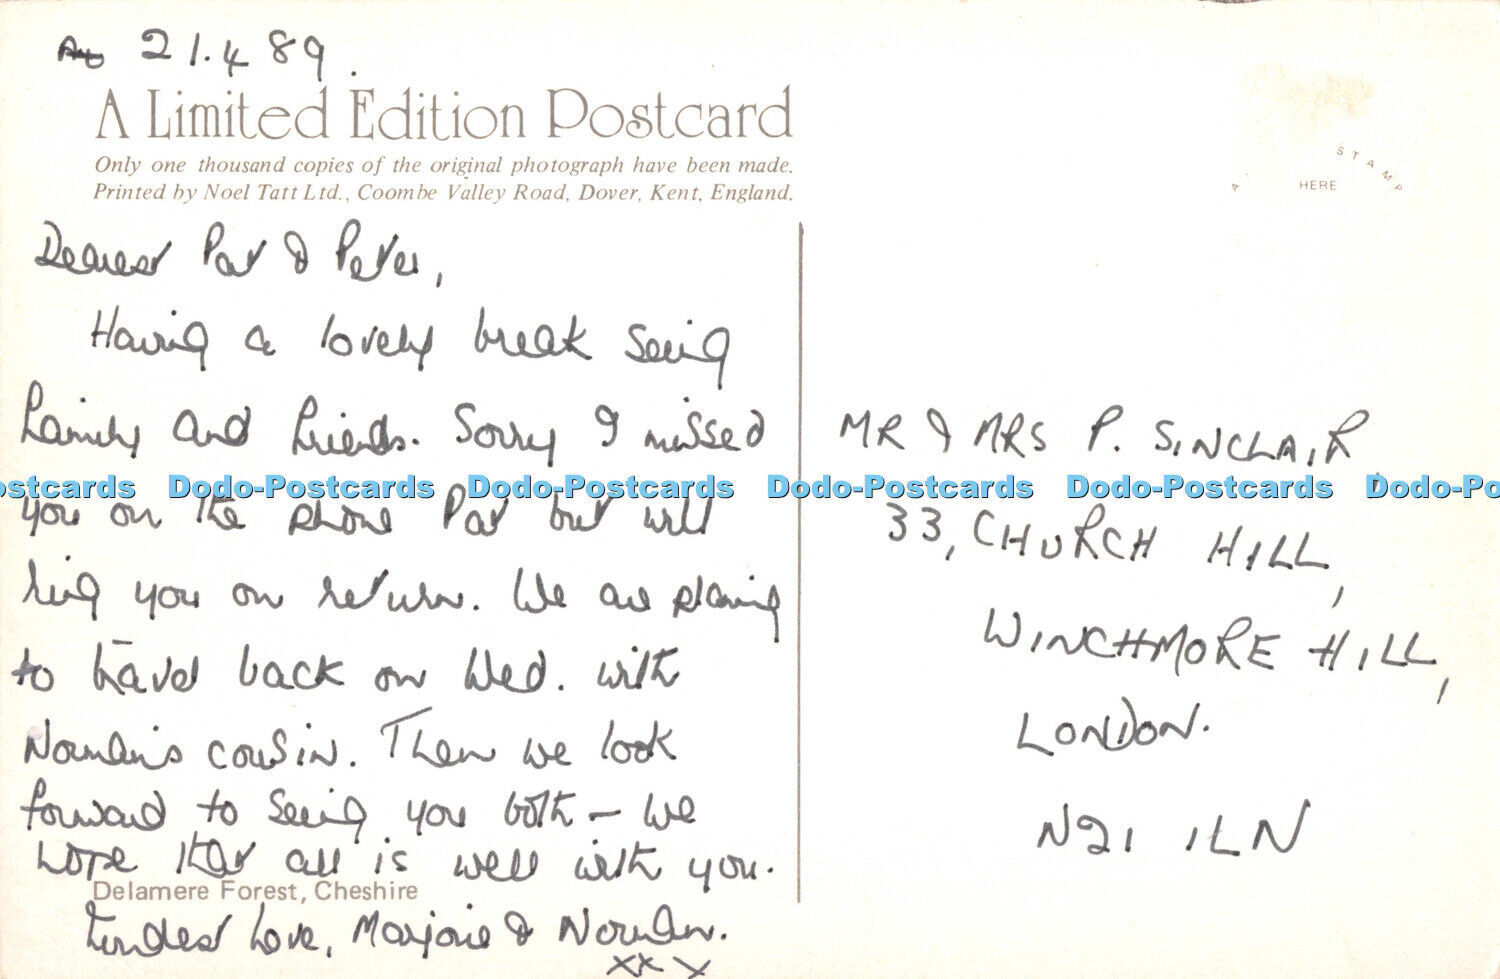 21.4 89.
A Limited Edition Postcard
Only one thousand copies of the original photograph have been made.
Printed by Noel Tatt Ltd., Coombe Valley Road, Dover, Kent, England.
STAMP
HERE
Dearest Pat & Peter,
Having a lovely break seeing
family and friends. Sorry I missed
you on the phone Pat but will
ring you on return. We are planning
to travel back on Wed. with
Norman's cousin. Then we look
forward to seeing you both – we
hope that all is well with you.
Delamere Forest, Cheshire
Fondest love, Marjorie & Norman.
xxx
MR & MRS P. SINCLAIR,
33, CHURCH HILL,
WINCHMORE HILL,
LONDON.
N21 1LN
ostcards Dodo-Postcards Dodo-Postcards Dodo-Postcards Dodo-Postcards Dodo-Po